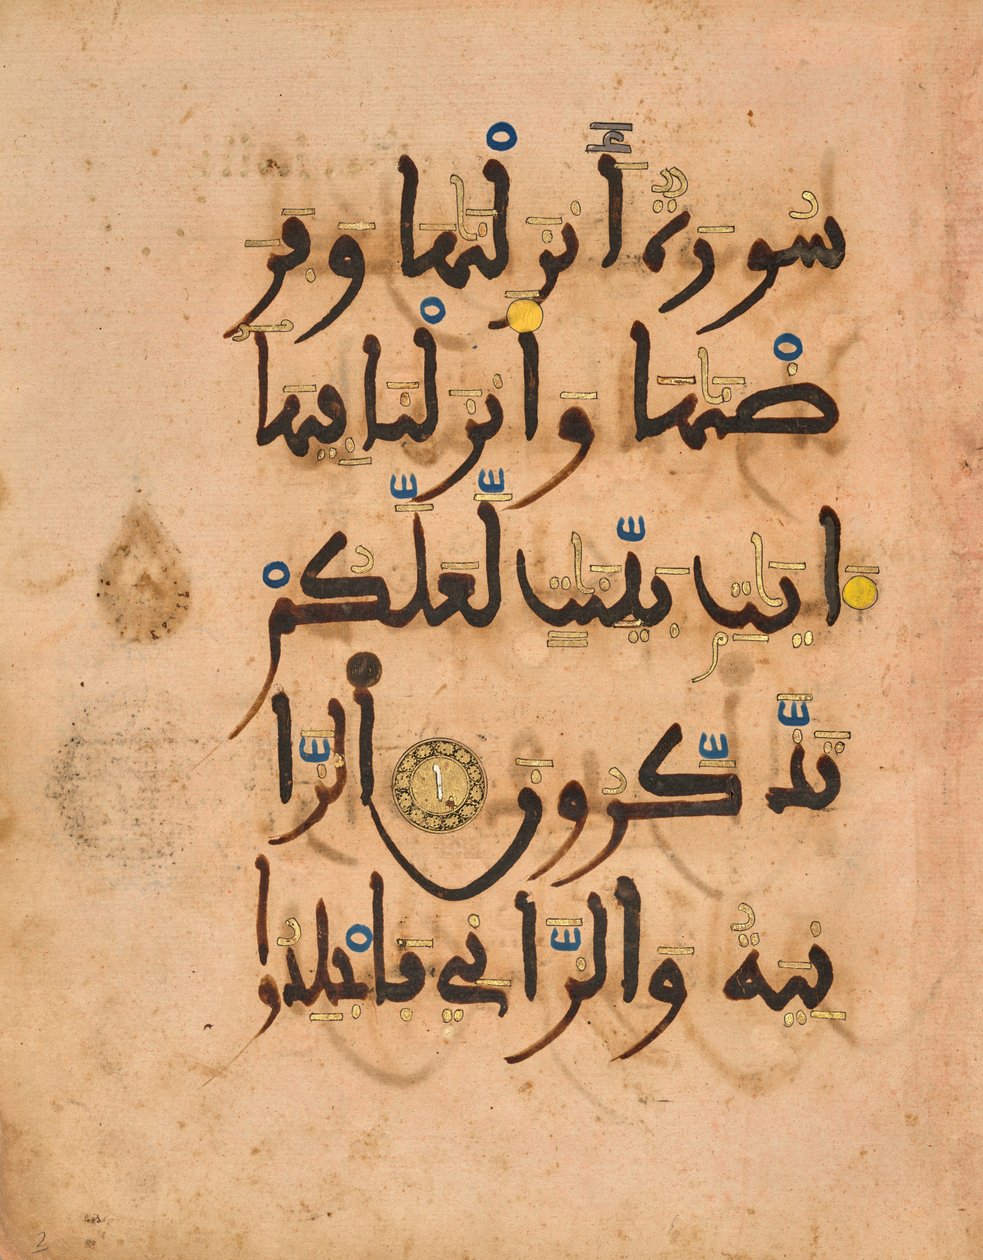 سُورَةٌ أَنزَلْنَٰهَا وَفَرَ
ضْنَٰهَا وَأَنزَلْنَا فِيهَا
ءَايَٰتٍ بَيِّنَٰتٍ لَّعَلَّكُمْ
تَذَّكَّرُونَ ا الزَّا
نِيَةُ وَالزَّانِي فَاجْلِدُوا
2